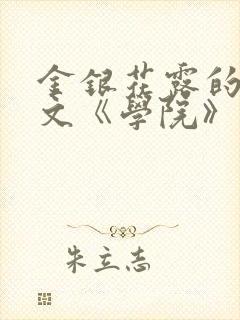 金銀花露的
文《學院》
朱立志